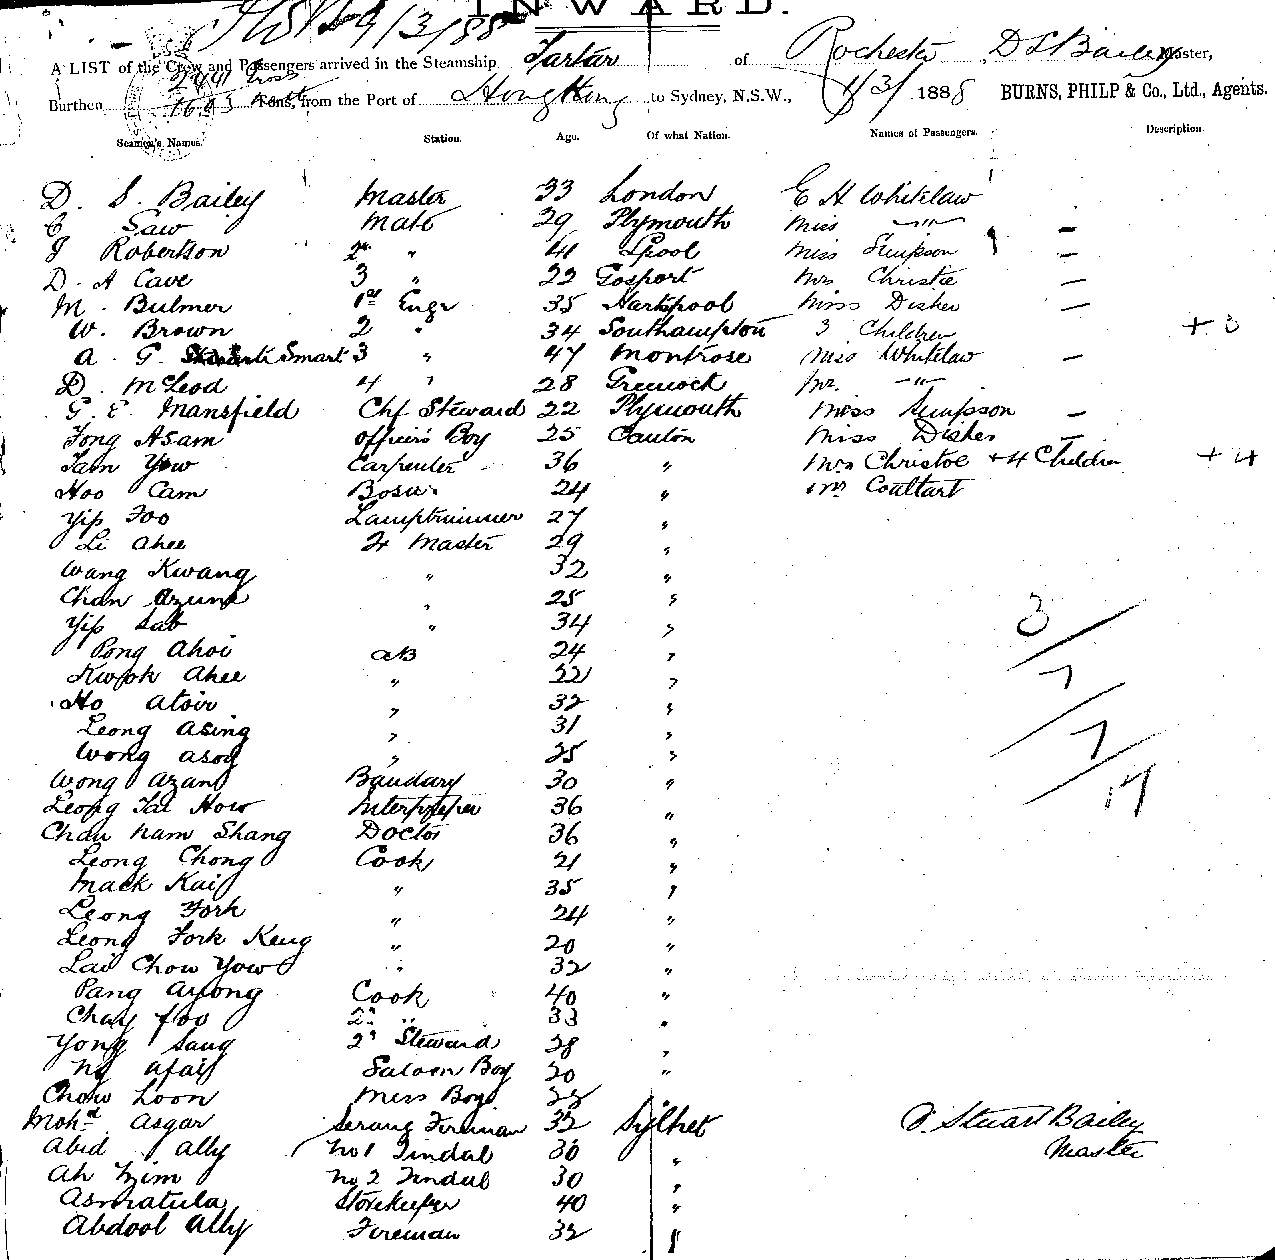 INWARD.
9/3/88
A LIST of the Crew and Passengers arrived in the Steamship Tartar of Rochester D S Bailey Master,
2441 Gross
Burthen 1603 Nett Tons, from the Port of HongKong to Sydney, N.S.W., 1/3/ 1888 BURNS, PHILP & Co., Ltd., Agents.
Seamen's Names. Station. Age. Of what Nation. Names of Passengers. Description.
D. S. Bailey Master 33 London E H Whitelaw
C Saw Mate 29 Plymouth Miss —"— –
J Robertson 2nd " 41 Lpool Miss Simpson –
D. A Cave 3 " 22 Gosport Mrs Christie –
M. Bulmer 1st Engr 35 Hartlepool Miss Disher –
W. Brown 2 " 34 Southampton 3 Children + 3
A. G. Smart 3 " 47 Montrose Miss Whitelaw –
D. McLeod 4 " 28 Greenock Mr. —"—
G. E. Mansfield Chf Steward 22 Plymouth Miss Simpson –
Fong Asam Officers Boy 25 Canton Miss Disher –
Tam Yow Carpenter 36 " Mrs Christoe + 4 Children + 4
Hoo Cam Bosun 24 " Mr Coultart
Yip Foo Lamptrimmer 27 "
Li Ahee Qr Master 29 "
Wang Kwang " 32 "
Chan " 25 "
Yip Sab " 34 "
Pong Ahoi AB 24 "
Kwok Ahee " 22 "
Ho Atoir " 32 "
Leong Asing " 31 "
Wong Asoy " 25 "
Wong Azan Bandary 30 "
Leong Tai How Interpreter 36 "
Chan Nam Shang Doctor 36 "
Leong Chong Cook 21 "
Mack Kai " 35 "
Leong Fork " 24 "
Leong Fork Keng " 20 "
Lai Chow Yow " 32 "
Pang Ayong Cook 40 "
Chay Foo 2nd " 33 "
Yong Sang 2nd Steward 28 "
Ng Afai Saloon Boy 20 "
Chow Loon Mess Boy 22 "
Mohd Asgar Serang Fireman 32 Sylhet
Abid Ally No 1 Tindal 30 "
Ah Nzim No 2 Tindal 30 "
Asmatula Storekeeper 40 "
Abdool Ally Fireman 32 "
3/
7
/7
/17
D. Stuart Bailey
Master